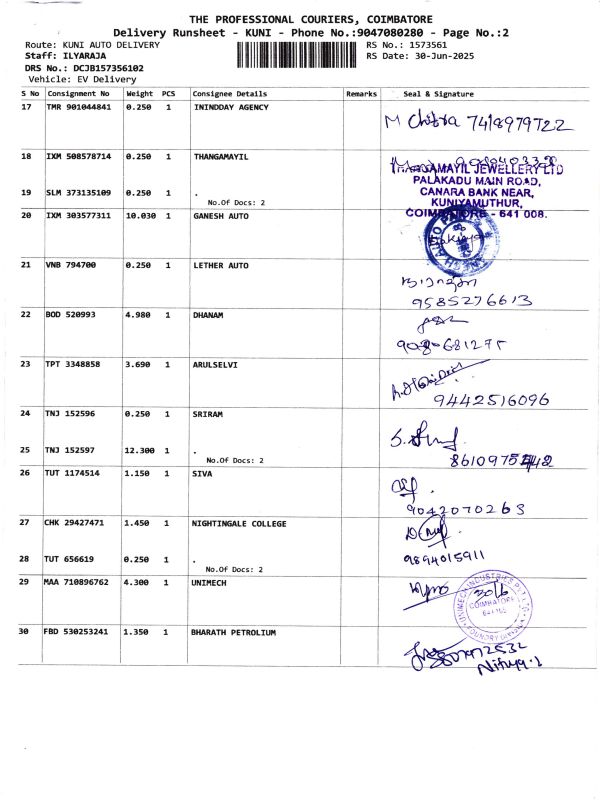 THE PROFESSIONAL COURIERS, COIMBATORE
Delivery Runsheet - KUNI - Phone No.:9047080280 - Page No.:2
Route: KUNI AUTO DELIVERY RS No.: 1573561
Staff: ILYARAJA RS Date: 30-Jun-2025
DRS No.: DCJB157356102
Vehicle: EV Delivery
S No Consignment No Weight PCS Consignee Details Remarks Seal & Signature
17 TMR 901044841 0.250 1 ININDDAY AGENCY
M Chitra 7418979722
18 IXM 508578714 0.250 1 THANGAMAYIL
THANGAMAYIL JEWELLERY LTD
PALAKADU MAIN ROAD,
19 SLM 373135109 0.250 1 . CANARA BANK NEAR,
No.Of Docs: 2 KUNIYAMUTHUR,
20 IXM 303577311 10.030 1 GANESH AUTO COIMBATORE - 641 008.
21 VNB 794700 0.250 1 LETHER AUTO
9585276613
22 BOD 520993 4.980 1 DHANAM
23 TPT 3348858 3.690 1 ARULSELVI
9442516096
24 TNJ 152596 0.250 1 SRIRAM
25 TNJ 152597 12.300 1 .
No.Of Docs: 2
26 TUT 1174514 1.150 1 SIVA
9042070263
27 CHK 29427471 1.450 1 NIGHTINGALE COLLEGE
9894015911
28 TUT 656619 0.250 1 .
No.Of Docs: 2
29 MAA 710896762 4.300 1 UNIMECH
30/6
UNIMECH INDUSTRIES PVT LTD
COIMBATORE
30 FBD 530253241 1.350 1 BHARATH PETROLIUM
Nithya.J